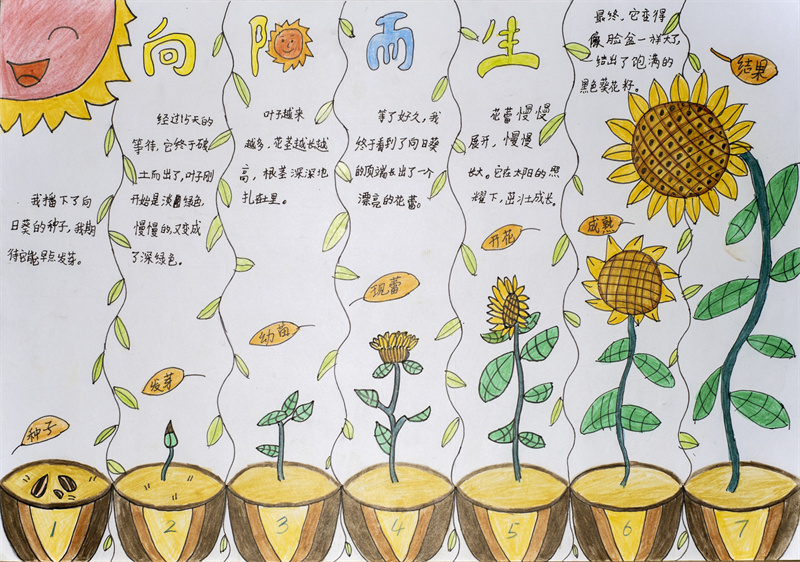 向阳而生
我播下了向
日葵的种子,我期
待它能早点发芽。
经过15天的
等待,它终于破
土而出了,叶子刚
开始是淡绿色,
慢慢的,又变成
了深绿色。
叶子越来
越多,花茎越长越
高,根茎深深地
扎在里。
等了好久,我
终于看到了向日葵
的顶端长出了一个
漂亮的花蕾。
花蕾慢慢
展开,慢慢
长大。它在太阳的照
耀下,茁壮成长。
最终,它变得
像脸盆一样大了,
结出了饱满的
黑色葵花籽。
种子
发芽
幼苗
现蕾
开花
成熟
结果
1
2
3
4
5
6
7